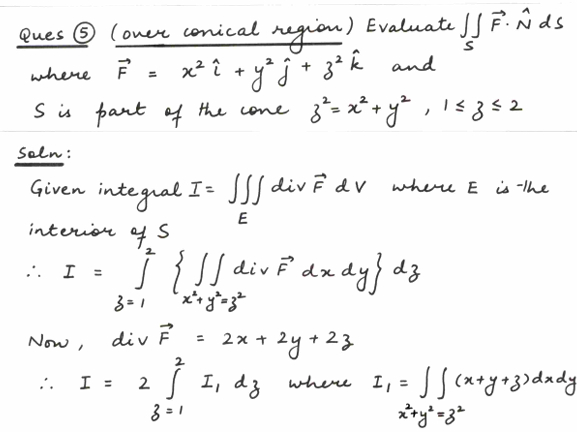 Ques ⑤ (over conical region) Evaluate ∬_S F⃗ · N̂ ds
where F⃗ = x² î + y² ĵ + z² k̂ and
S is part of the cone z² = x² + y² , 1 ≤ z ≤ 2
Soln:
Given integral I = ∭_E div F⃗ dV where E is the
interior of S
∴ I = ∫_{z=1}^{2} { ∬_{x²+y²=z²} div F⃗ dx dy } dz
Now, div F⃗ = 2x + 2y + 2z
∴ I = 2 ∫_{z=1}^{2} I₁ dz where I₁ = ∬_{x²+y²=z²} (x+y+z) dx dy